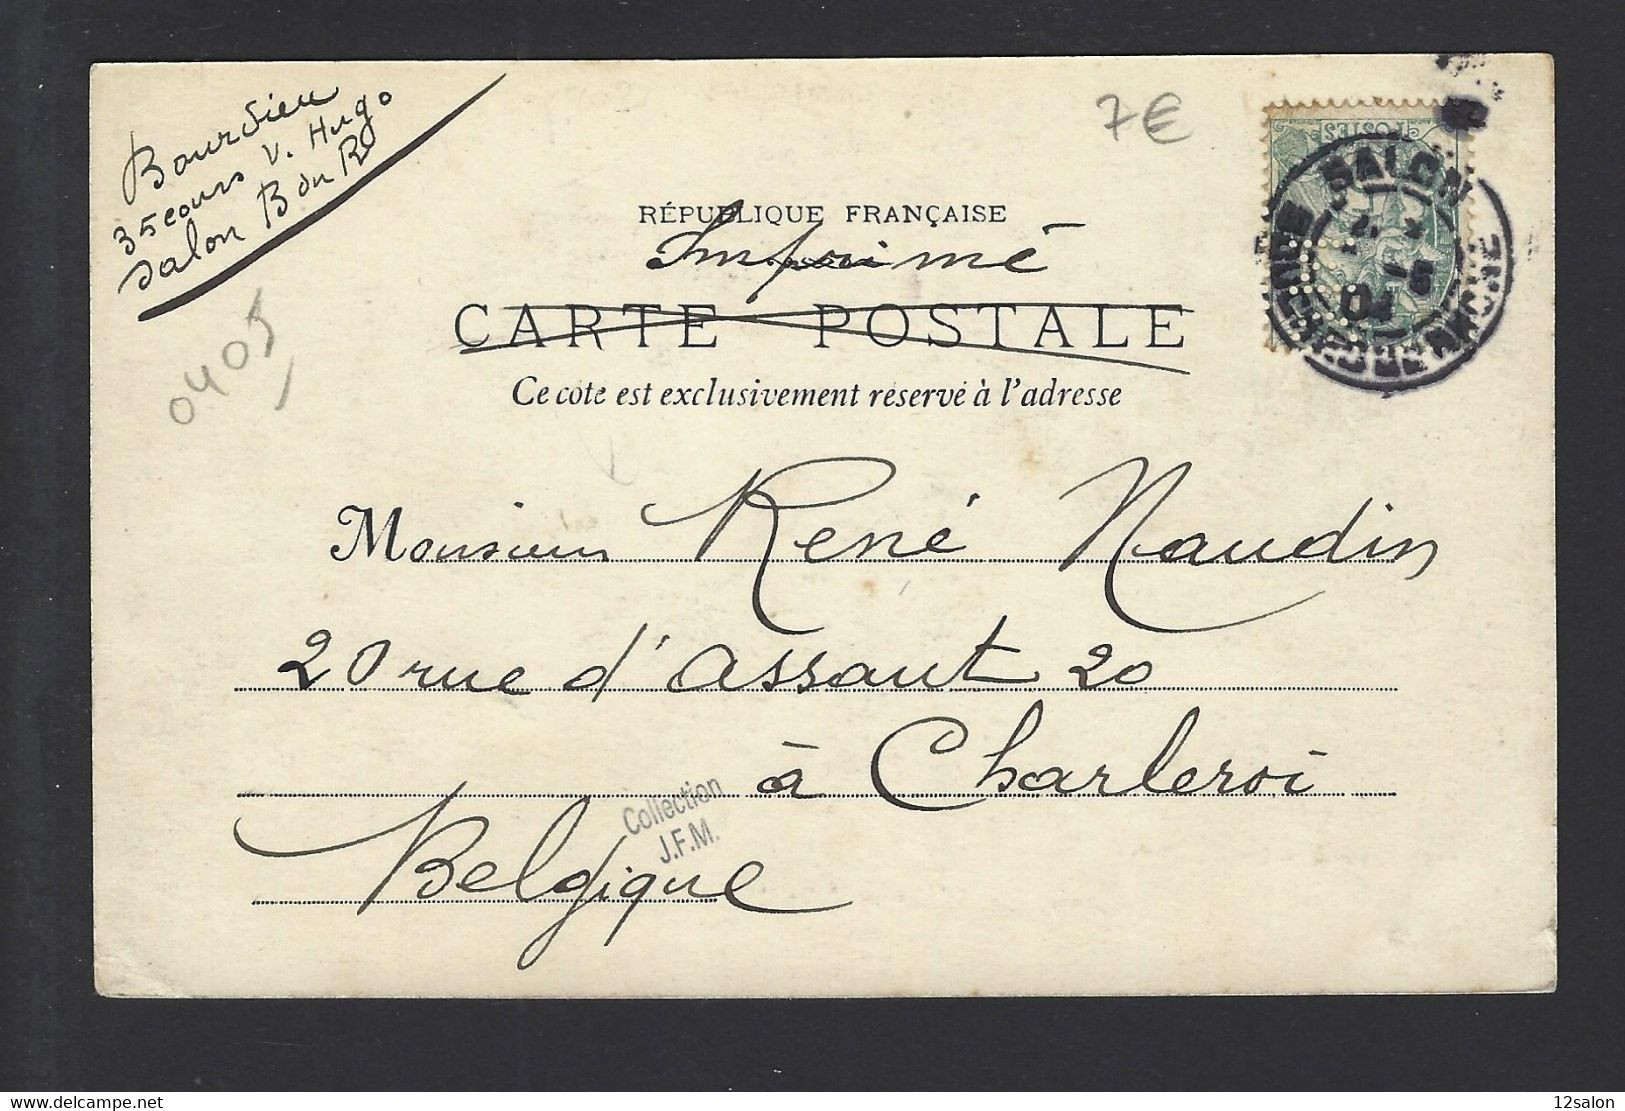 Bourdieu
35 cours V. Hugo
Salon B du R
7€
0405
POSTES
SALON
BOUCHES DU RHONE
5
04
RÉPUBLIQUE FRANÇAISE
Imprimé
CARTE POSTALE
Ce côté est exclusivement réservé à l'adresse
Monsieur René Naudin
20 rue d'assaut 20
à Charleroi
Belgique
Collection
J.F.M.
Delcampe.net
12salon